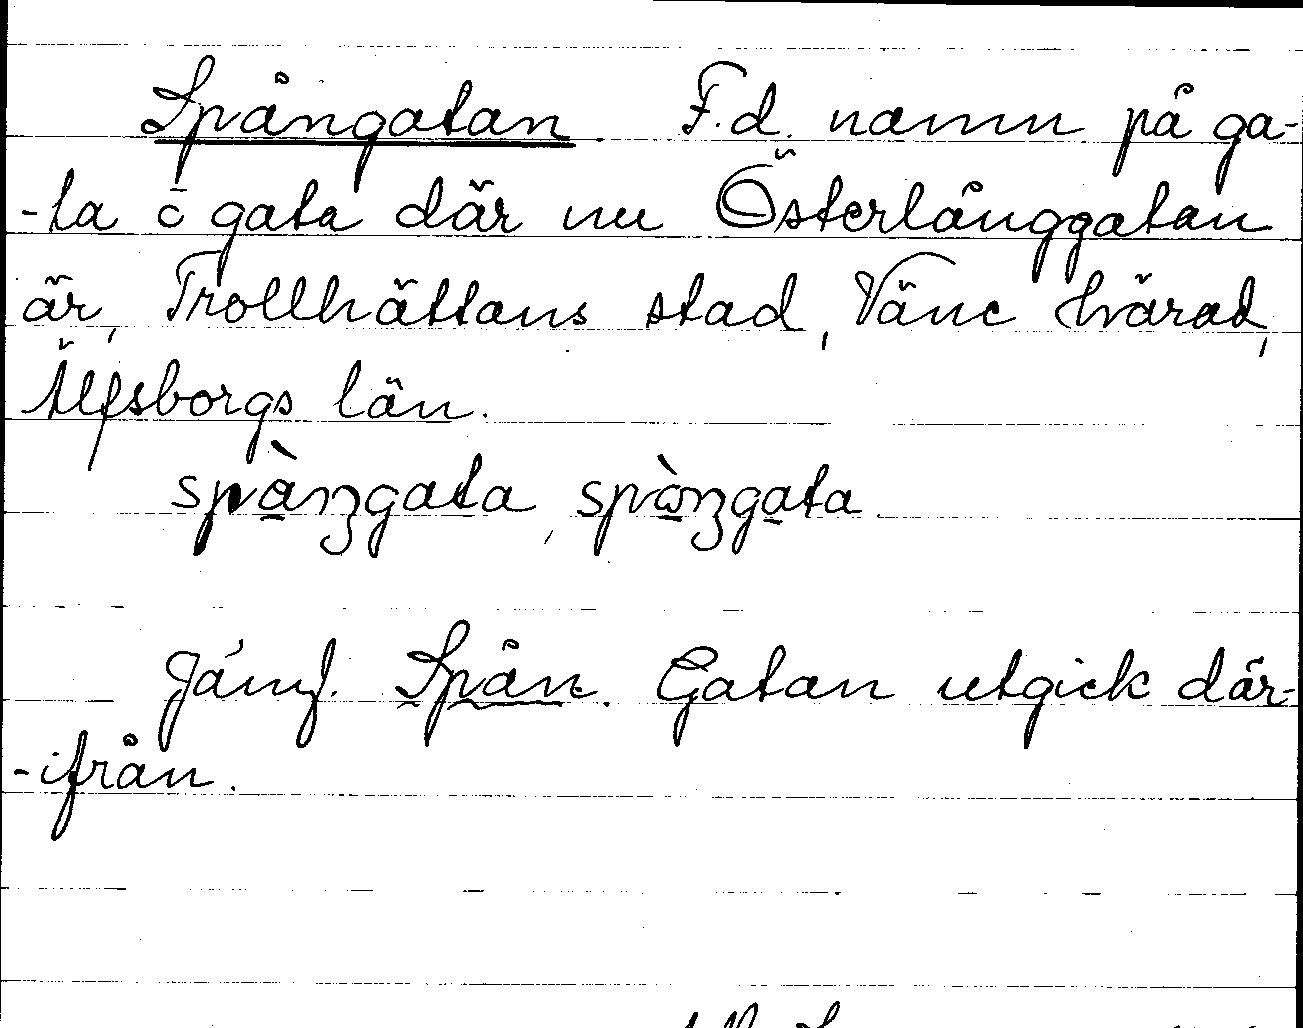 Spångatan. F.d. namn på ga-
-ta ō gata där nu Österlånggatan
är, Trollhättans stad, Väne härad,
Älfsborgs län.
Jämf. Spån. Gatan utgick där-
-ifrån.